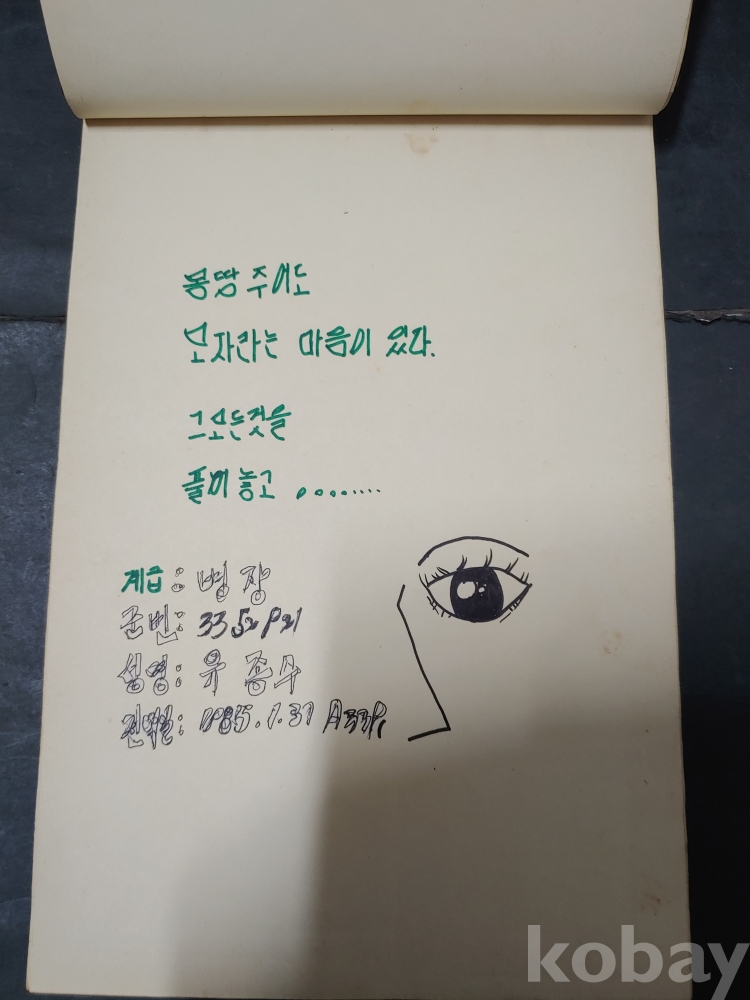 몽땅 주어도
모자라는 마음이 있다.
그 모든것을
풀어 놓고 ........
계급: 병장
군번:
성명: 유종수
1985.1.31
kobay